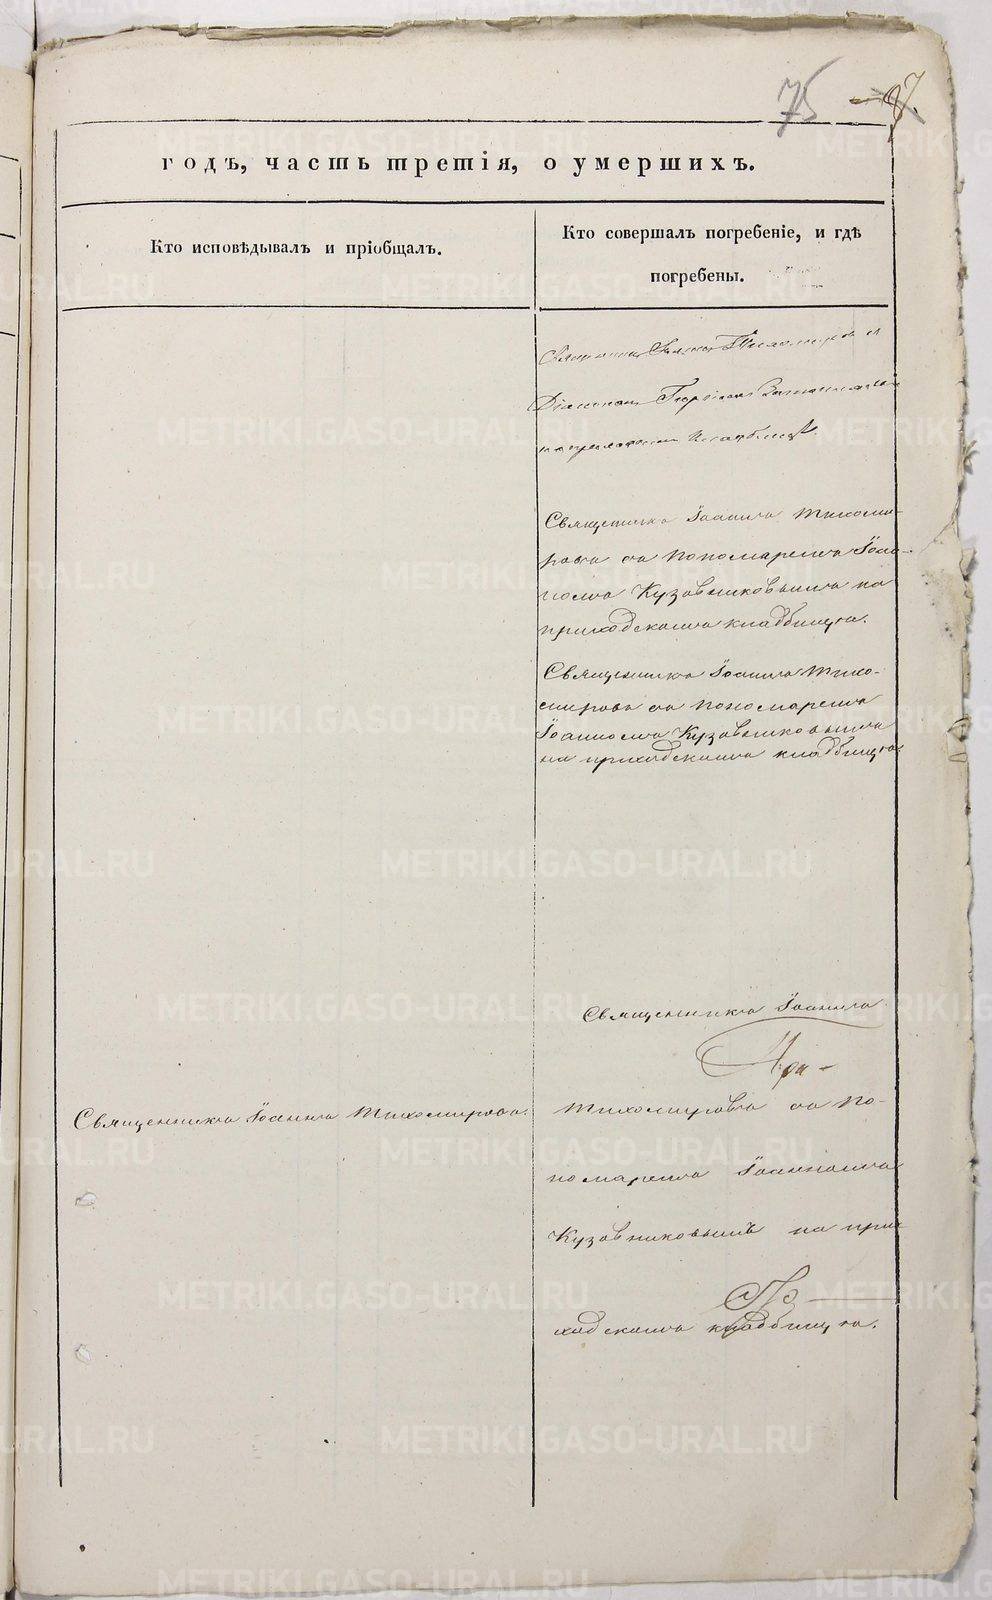 75
годъ, часть третія, о умершихъ.
Кто исповѣдывалъ и пріобщалъ.
Кто совершалъ погребеніе, и гдѣ
погребены.
Священникъ Іоаннъ Тихомировъ и
Діакономъ
на приходскомъ кладбищѣ.
Священникъ Іоаннъ Тихоми-
ровъ съ пономаремъ Іоан-
номъ Кузовниковымъ на
приходскомъ кладбищѣ.
Священникъ Іоаннъ Тихо-
мировъ съ пономаремъ
Іоанномъ Кузовниковымъ
на приходскомъ кладбищѣ.
Священникъ Іоаннъ
Священникъ Іоаннъ Тихомировъ.
Тихомировъ съ по-
номаремъ Іоанномъ
Кузовниковымъ на при-
ходскомъ кладбищѣ.
METRIKI.GASO-URAL.RU